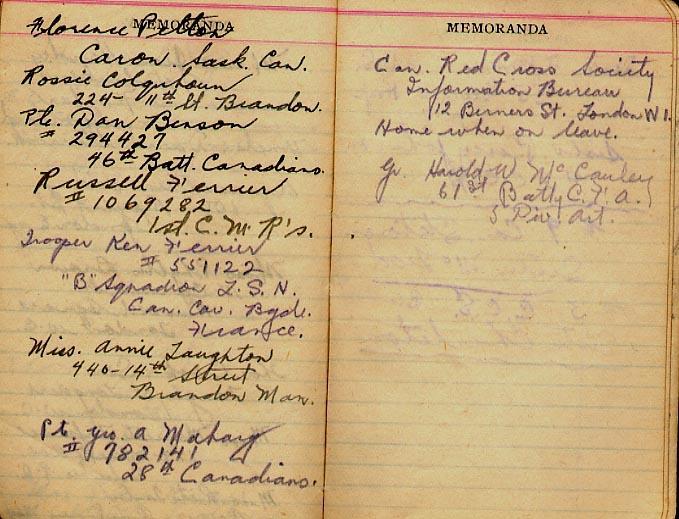 MEMORANDA
Florence Pelton
Caron. Sask. Can.
Rossie Colquhoun
224- 11th St. Brandon.
Pte. Dan Benson
# 294427
46th Batt. Canadians.
Russell Ferrier
# 1069282
1st. C. M. R's.
Trooper Ken Ferrier
# 551122
"B" Squadron L. S. H.
Can. Cav. Bgde.
France.
Miss. Annie Laughton
440-14th Street
Brandon Man.
Pt. Geo. A Maharg
# 782141
28th Canadians.
MEMORANDA
Can. Red Cross Society
Information Bureau
12 Berners St. London W 1.
Home when on leave.
Gr. Harold W. McCauley
61st Batty C. F. A.
5 Div. Art.